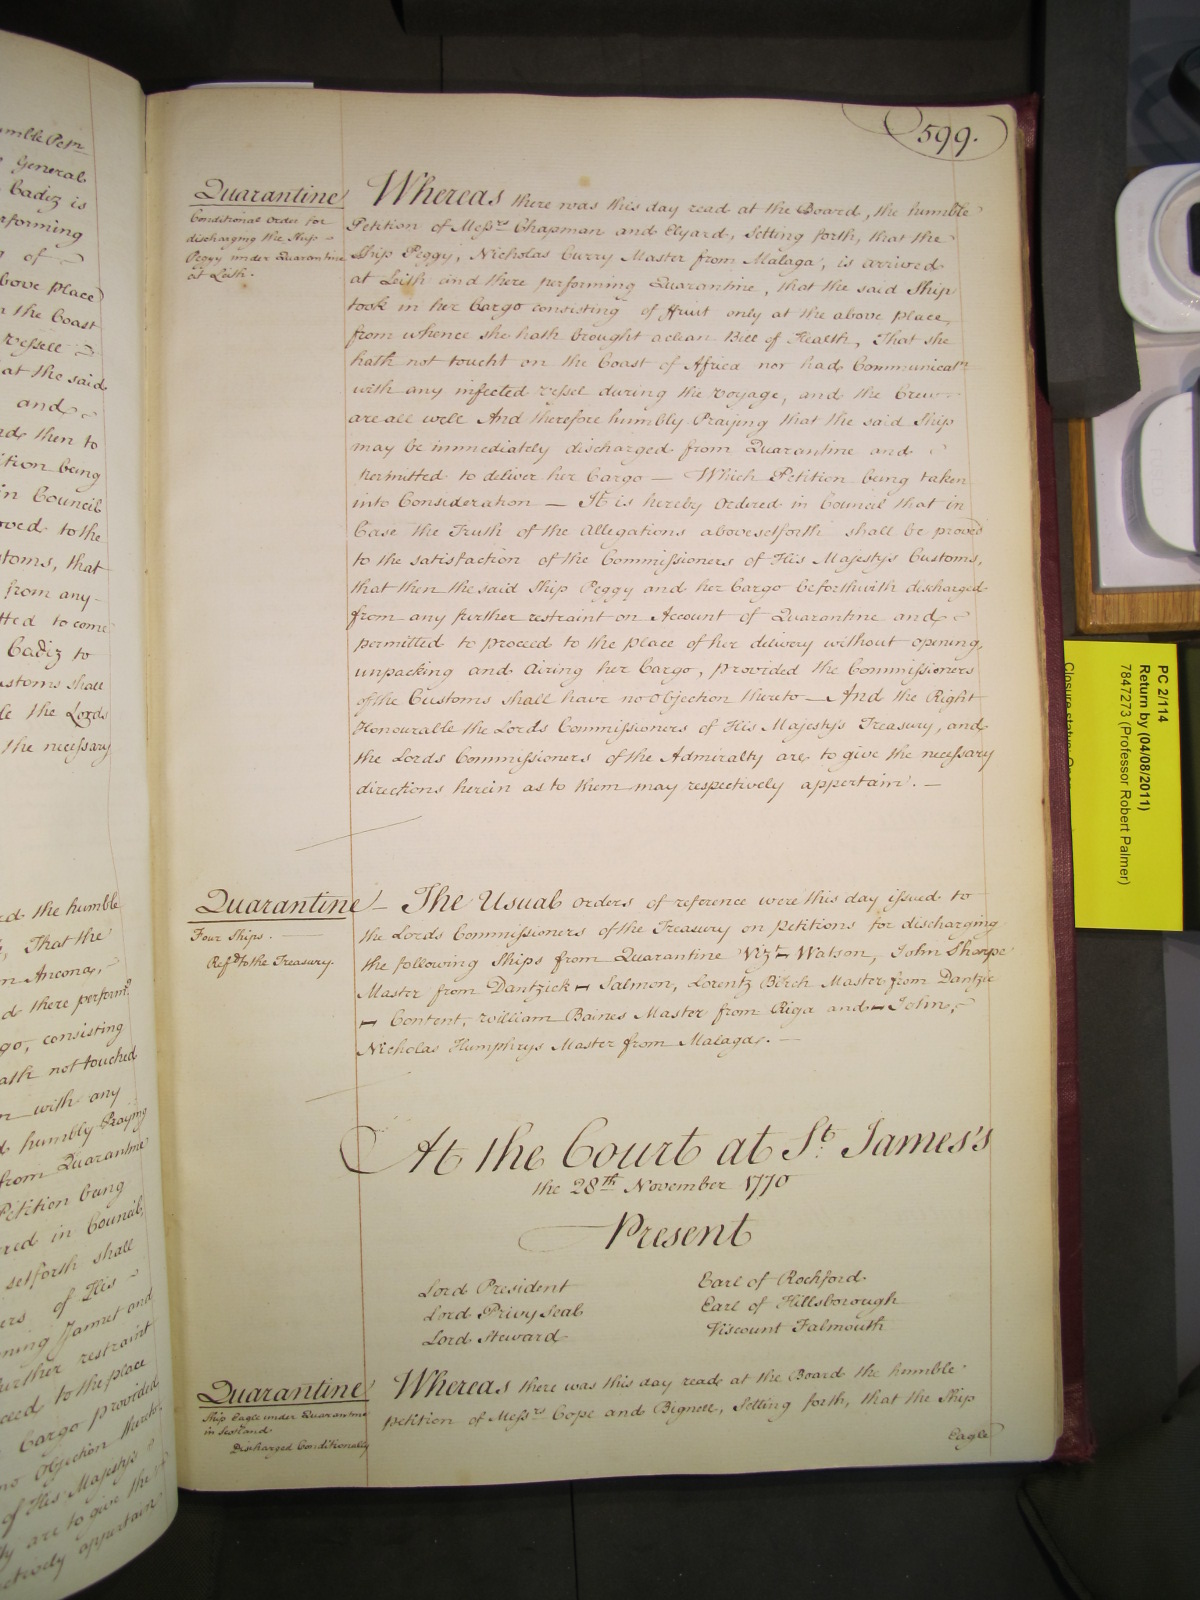 umble Petn
General
Cadiz is
rforming
of
bove place
the Coast
vessell
at the said
and
nd then to
ition being
in Council
oved to the
stoms, that
from any
tted to come
Cadiz to
ustoms shall
le the Lords
the necessary
ad the humble
That the
m Ancona,
d there perform.g
go, consisting
ath not touched
with any
d humbly Praying
from Quarantine
Petition being
red in Council,
setforth shall
ers of His
ning Jannet and
urther restraint
ceed to the place
Cargo provided
no Objection thereto,
of His Majesty's
ty are to give the
ectively appertain
599.
Quarantine
Conditional Order for
discharging the Ship
Peggy under Quarantine
at Leith.
Whereas there was this day read at the Board, the humble
Petition of Messrs Chapman and Elyard, Setting forth, that the
Ship Peggy, Nicholas Curry Master from Malaga, is arrived
at Leith and there performing Quarantine, that the said Ship
took in her Cargo consisting of ffruit only at the above place,
from whence she hath brought a clean Bill of Health, That she
hath not toucht on the Coast of Africa nor had Communicatn
with any infected vessel during the voyage, and the Crew
are all well And therefore humbly Praying that the said Ship
may be immediately discharged from Quarantine and
permitted to deliver her Cargo — Which Petition being taken
into Consideration — It is hereby Ordered in Council that in
Case the Truth of the Allegations abovesetforth shall be proved
to the satisfaction of the Commissioners of His Majesty's Customs,
that then the said Ship Peggy and her Cargo be forthwith discharged
from any further restraint on Account of Quarantine and
permitted to proceed to the place of her delivery without opening,
unpacking and airing her Cargo, provided the Commissioners
of the Customs shall have no Objection thereto — And the Right
Honourable the Lords Commissioners of His Majesty's Treasury, and
the Lords Commissioners of the Admiralty are to give the necessary
directions herein as to them may respectively appertain. —
Quarantine
Four Ships.
Refd to the Treasury.
The Usual orders of reference were this day issued to
the Lords Commissioners of the Treasury on petitions for discharging
the following Ships from Quarantine Vizt — Watson, John Sharpe
Master from Dantzick — Salmon, Lorentz Birch Master from Dantzic
— Content, William Baines Master from Riga and — John,
Nicholas Humphrys Master from Malaga. —
At the Court at St. James's
the 28th November 1770
Present
Lord President
Lord Privy Seal
Lord Steward
Earl of Rochford
Earl of Hillsborough
Viscount Falmouth
Quarantine
Ship Eagle under Quarantine
in Scotland
Discharged Conditionally
Whereas there was this day read at the Board the humble
petition of Messrs Cope and Bignell, Setting forth, that the Ship
Eagle
PC 2/114
Return by (04/08/2011)
7847273 (Professor Robert Palmer)
Closure status: Open